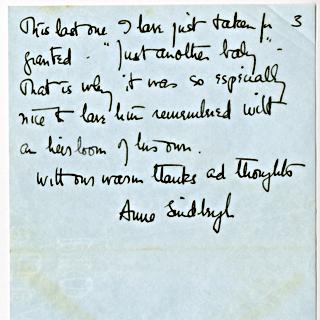 This last one I have just taken for 3
granted - "Just another baby" -
That is why it was so especially
nice to have him remembered with
an heirloom of his own.
With our warm thanks and thoughts
Anne Lindbergh